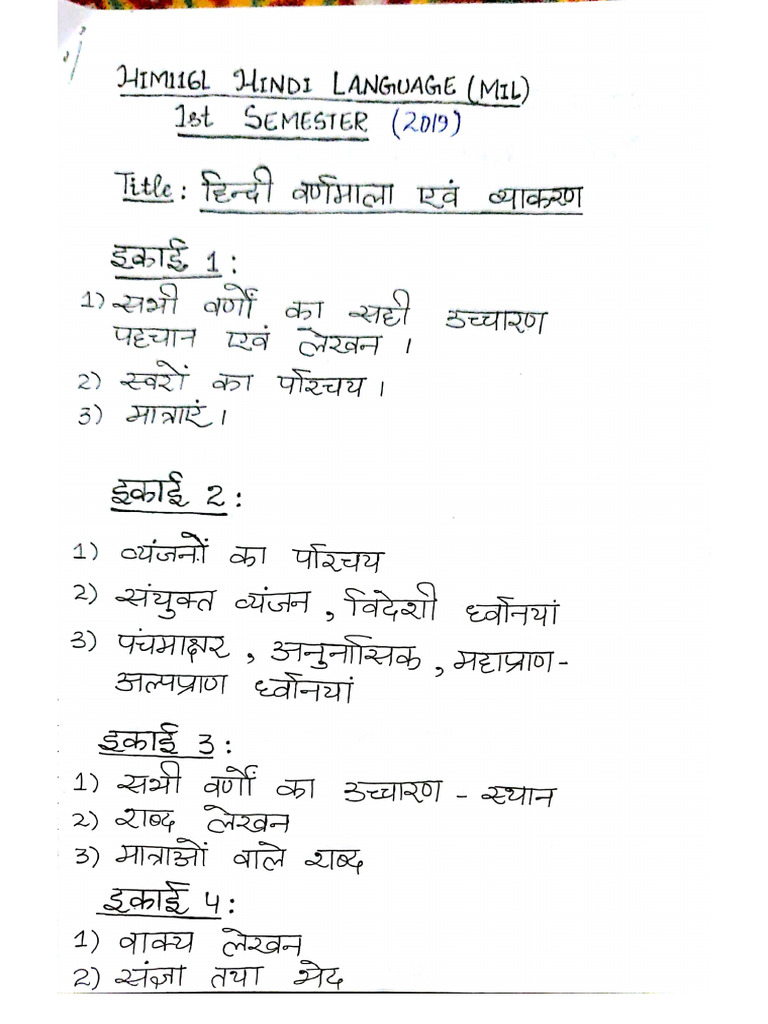 HIM116L HINDI LANGUAGE (MIL)
1st SEMESTER (2019)
Title: हिन्दी वर्णमाला एवं व्याकरण
इकाई 1:
1) सभी वर्णों का सही उच्चारण
पहचान एवं लेखन ।
2) स्वरों का परिचय ।
3) मात्राएं ।
इकाई 2:
1) व्यंजनों का परिचय
2) संयुक्त व्यंजन, विदेशी ध्वनियां
3) पंचमाक्षर, अनुनासिक, महाप्राण-
अल्पप्राण ध्वनियां
इकाई 3:
1) सभी वर्णों का उच्चारण - स्थान
2) शब्द लेखन
3) मात्राओं वाले शब्द
इकाई 4:
1) वाक्य लेखन
2) संज्ञा तथा भेद